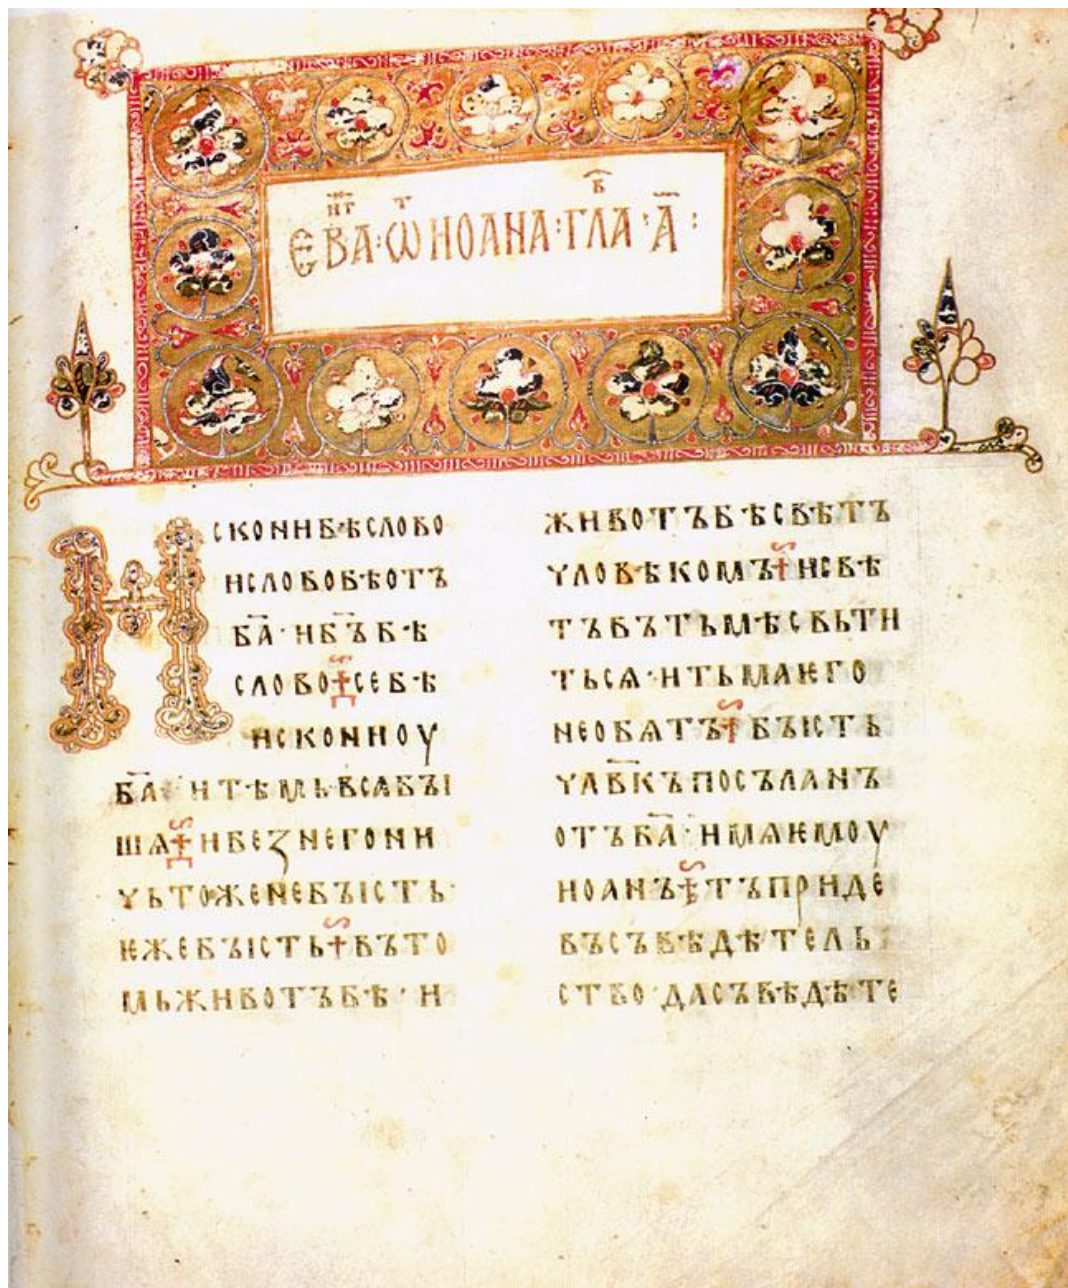 ЕВАНГ҃· ѾИОАНА·ГЛАВ·А҃·
Искони бѣ слово
и слово бѣ отъ
б҃а · и б҃ъ бѣ
слово ✝ се бѣ
искони оу
б҃а и тѣмь вьсѧ бꙑ
шѧ ✝ и без него ни
чьтоже не бꙑсть·
ѥже бꙑсть ✝ въ то
мь животъ бѣ · и
животъ бѣ свѣтъ
чловѣкомъ ✝ и свѣ
тъ въ тьмѣ свьти
тьсѧ · и тьма ѥго
не обѧтъ ✝ бꙑсть
чл҃вкъ посъланъ
отъ б҃а · имѧ ѥмоу
иоанъ ✝ тъ приде
въ съвѣдѣтель
ство · да съвѣдѣте